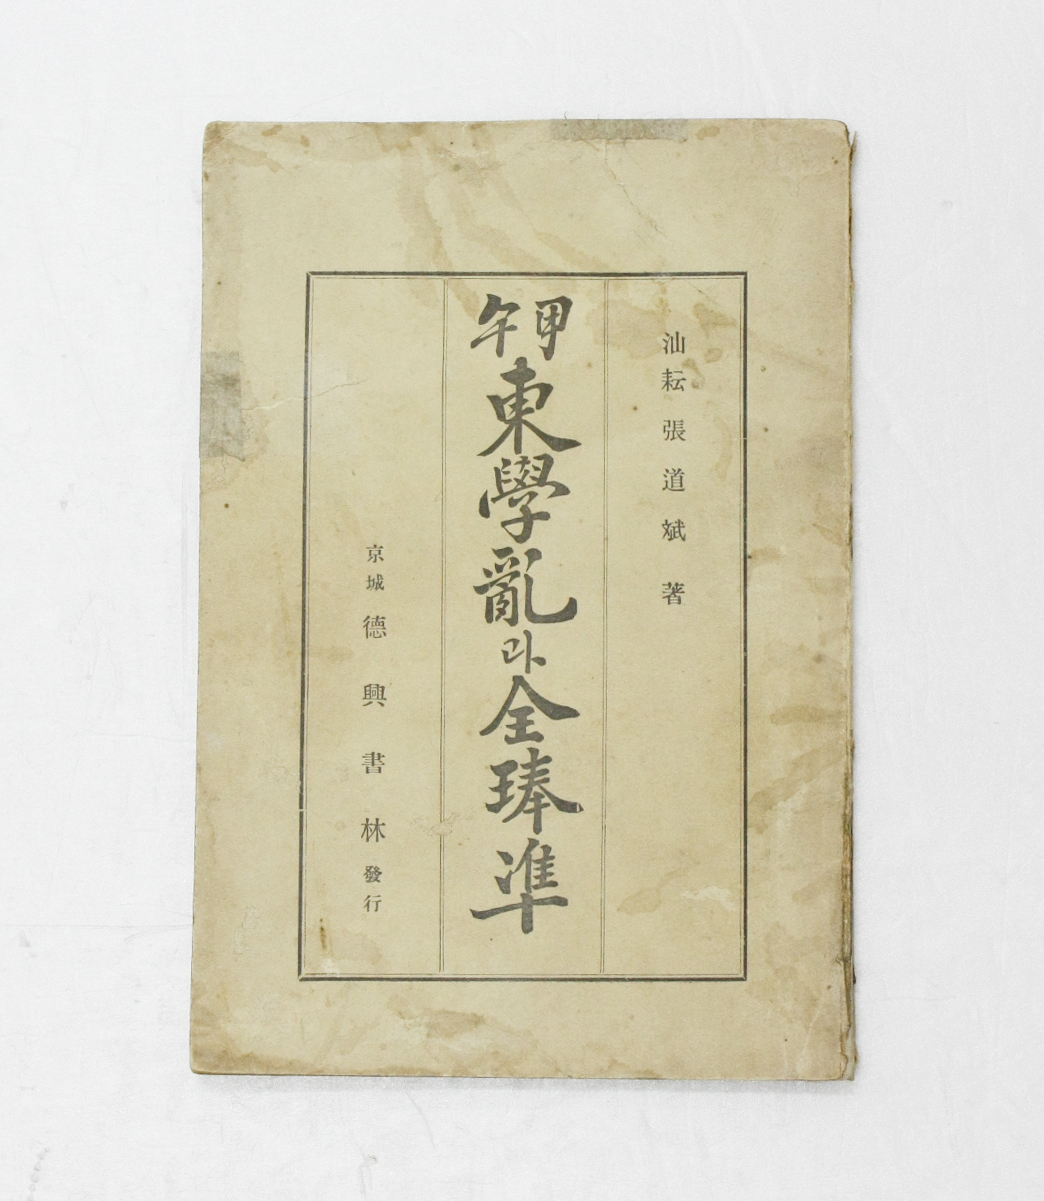 汕耘 張道斌 著
甲午 東學亂과 全琫準
京城 德興書林 發行